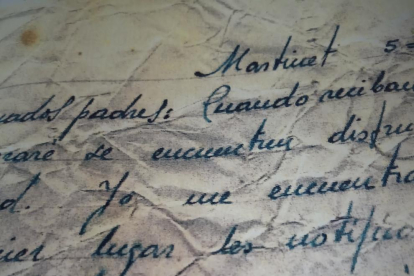 Martinet 5-
uados padres: Cuando reciban
eraré se encuentren disfru
d. Yo me encuentro
ier lugar les notific